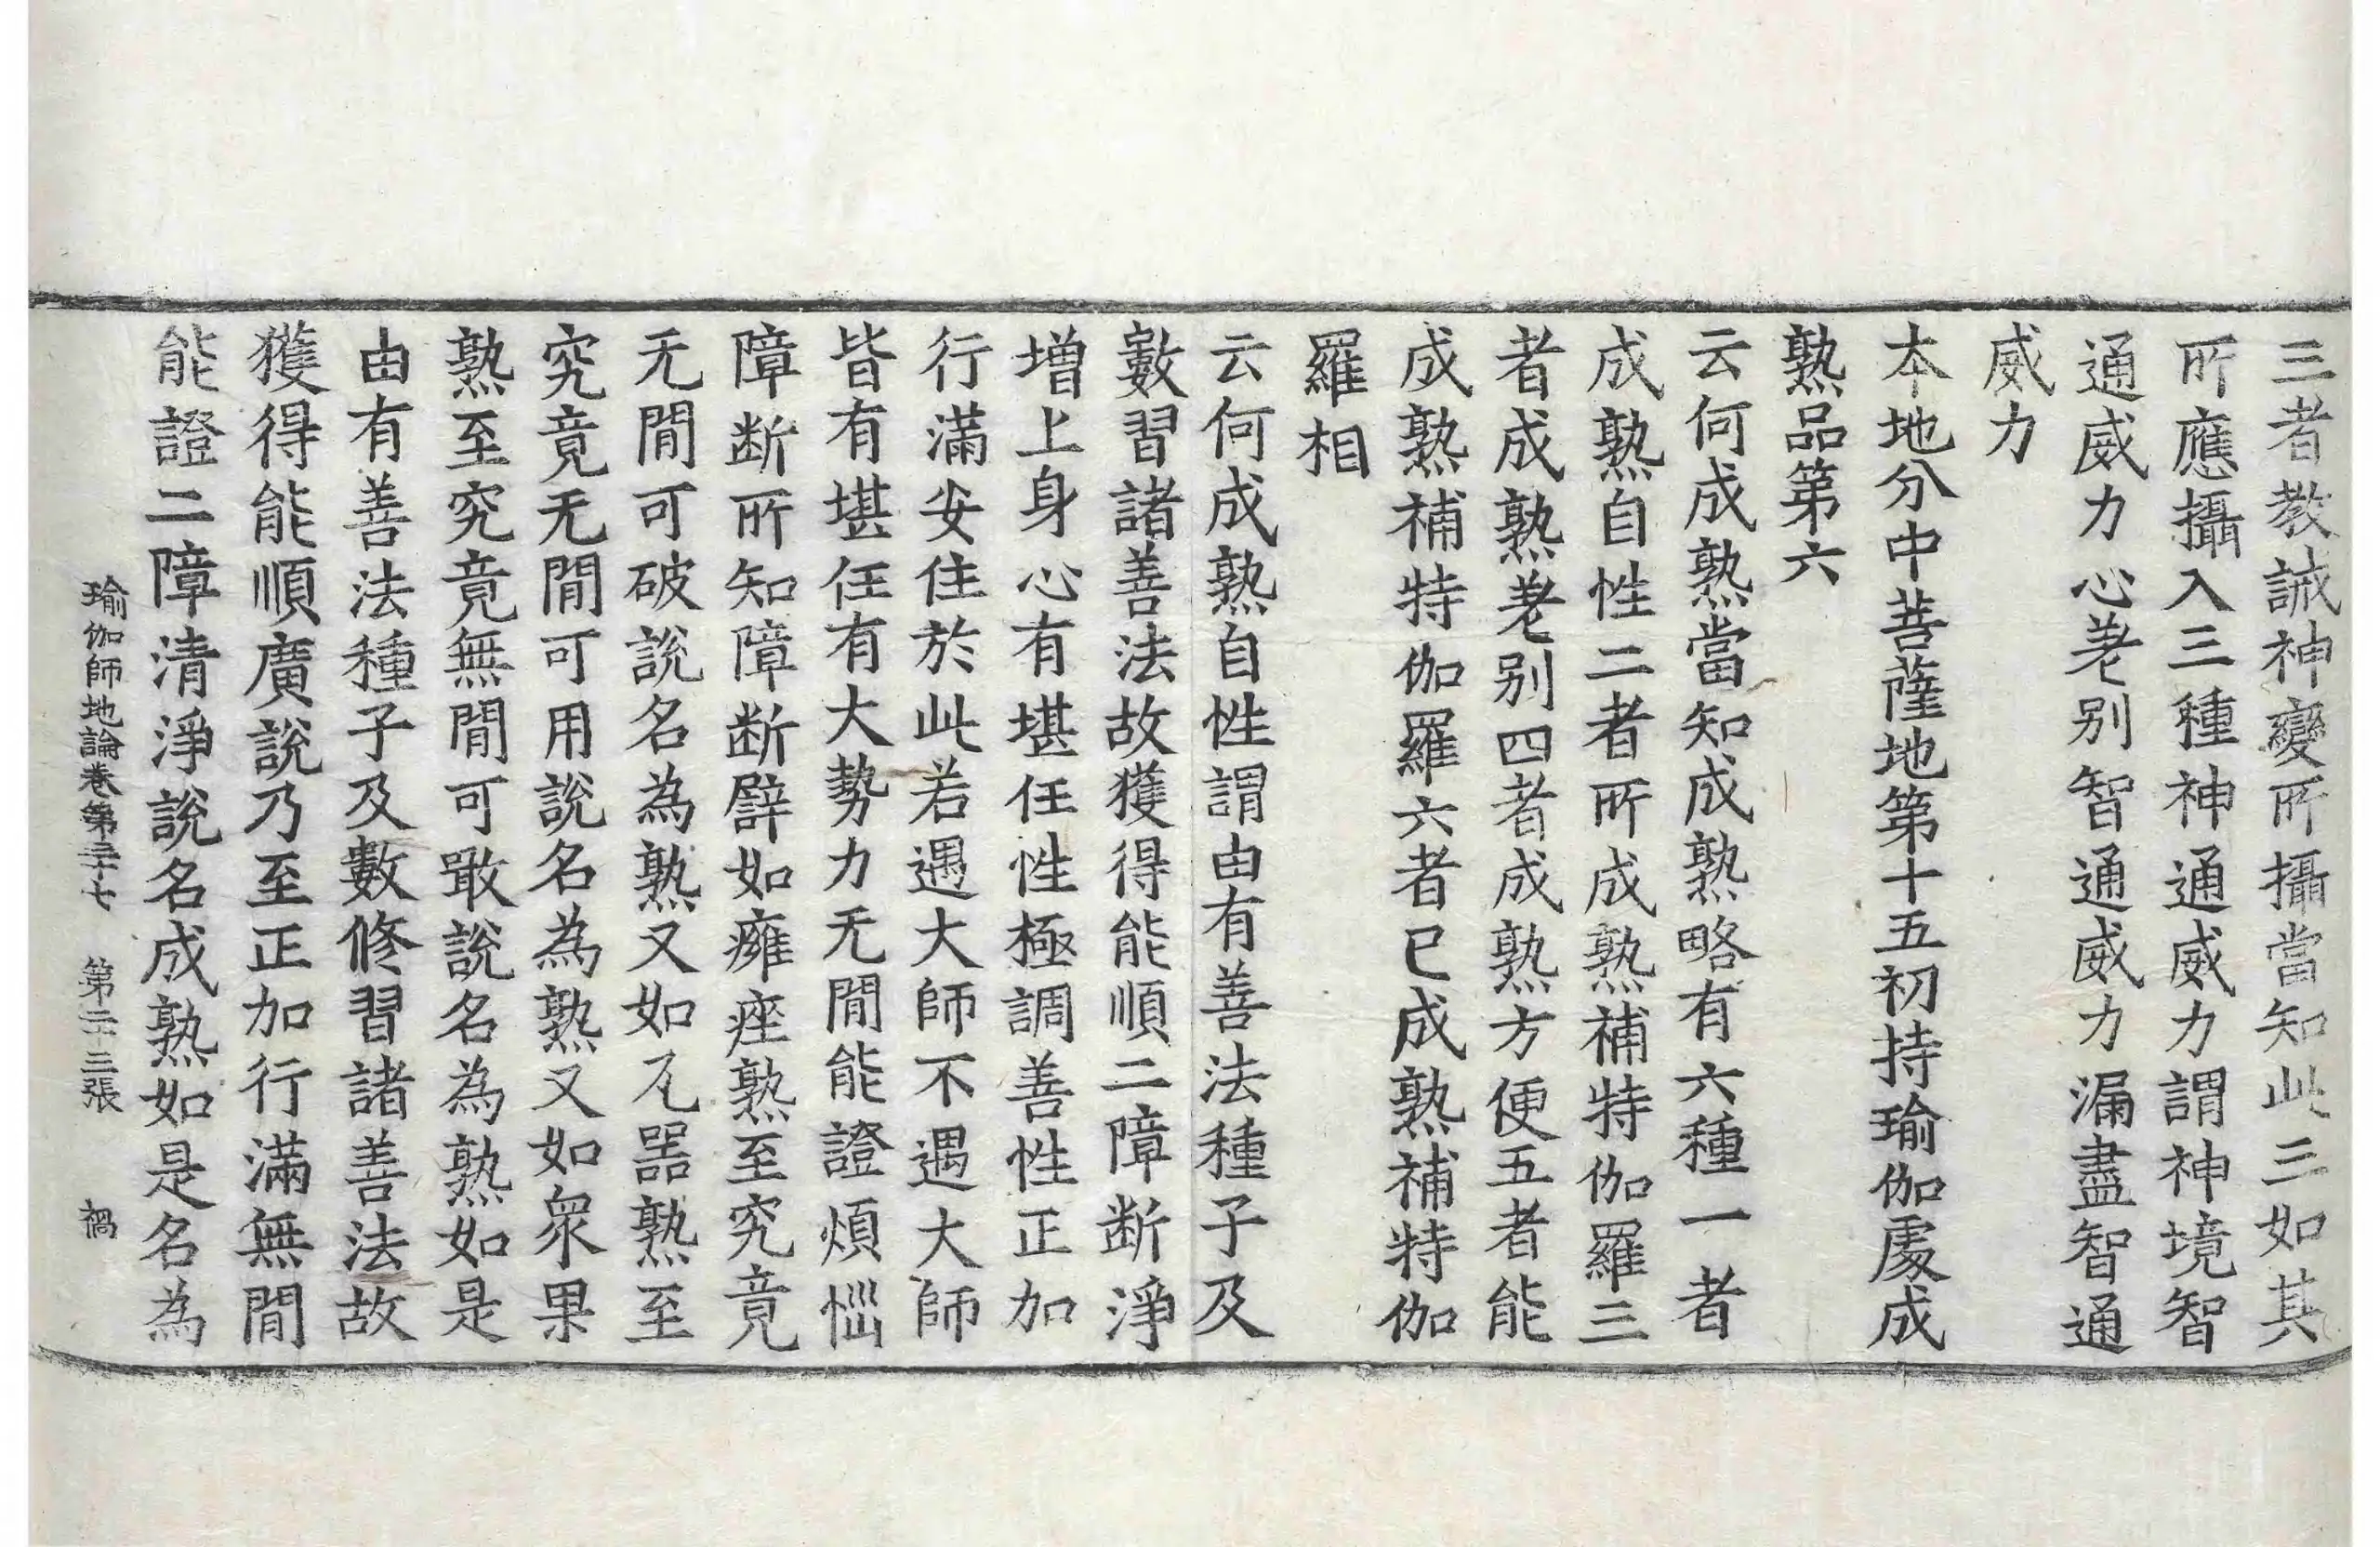 三者教誡神變所攝當知此三如其
所應攝入三種神通威力謂神境智
通威力心差别智通威力漏盡智通
威力
本地分中菩薩地第十五初持瑜伽處成
熟品第六
云何成熟當知成熟略有六種一者
成熟自性二者所成熟補特伽羅三
者成熟差别四者成熟方便五者能
成熟補特伽羅六者已成熟補特伽
羅相
云何成熟自性謂由有善法種子及
數習諸善法故獲得能順二障断淨
增上身心有堪任性極調善性正加
行滿安住於此若遇大師不遇大師
皆有堪任有大勢力无間能證煩惱
障断所知障断譬如癰痤熟至究竟
无間可破說名為熟又如瓦器熟至
究竟无間可用說名為熟又如衆果
熟至究竟無間可噉說名為熟如是
由有善法種子及數修習諸善法故
獲得能順廣說乃至正加行滿無間
能證二障清淨說名成熟如是名為
瑜伽師地論卷第三十七 第二十三張 禍